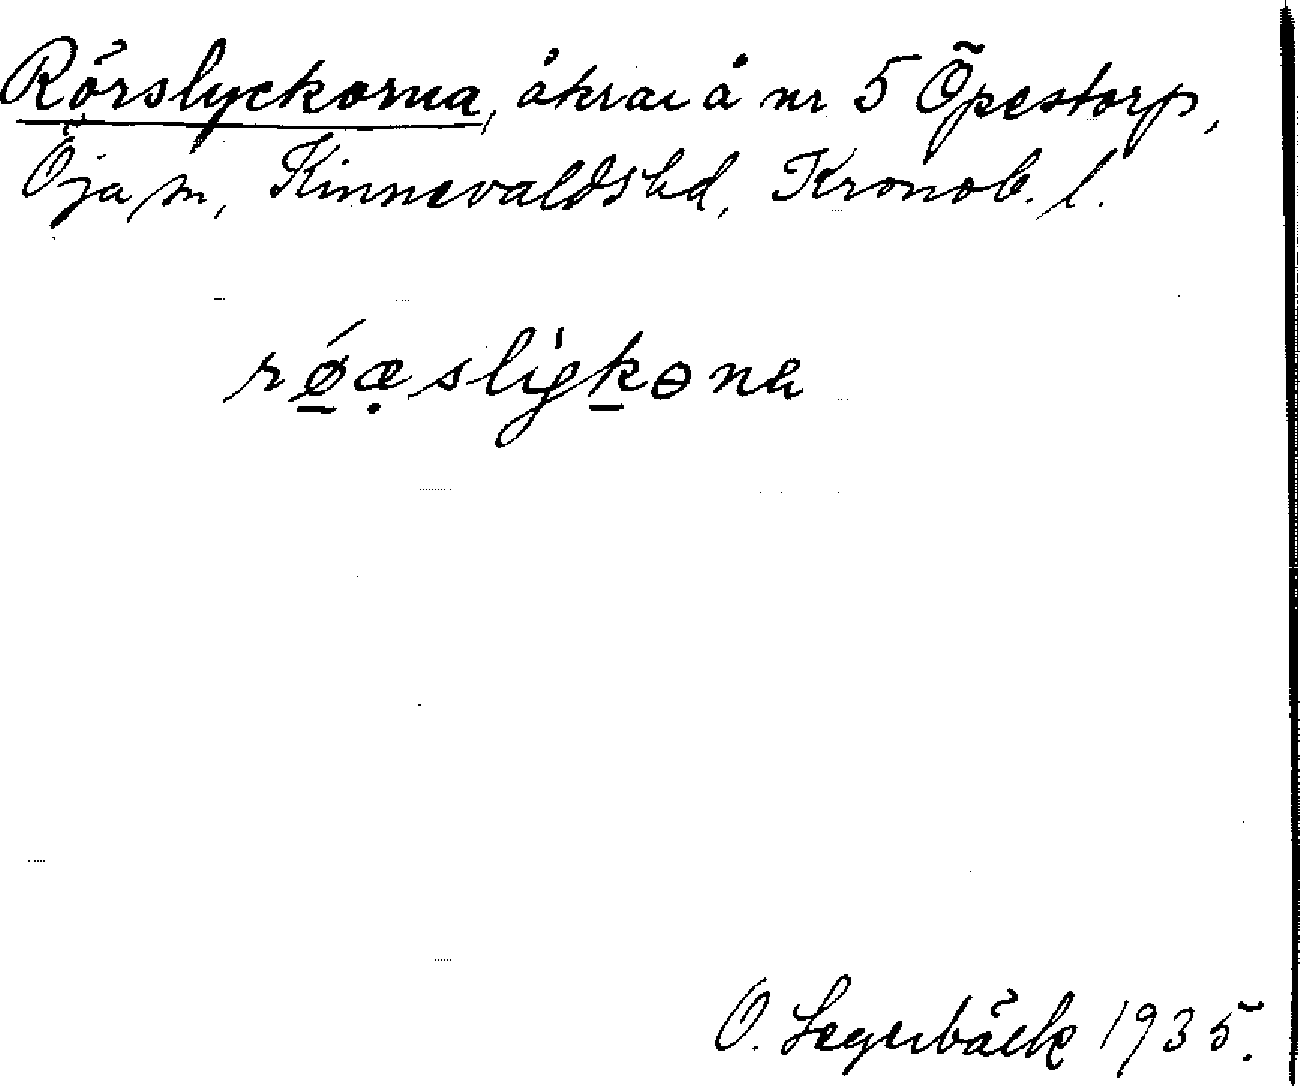 Rörslyckorna, åkrar å nr 5 Öpestorp,
Öja sn, Kinnevalds hd, Kronob. l.
rǿæ̣sligkɵna
O. Lagerbäck 1935.